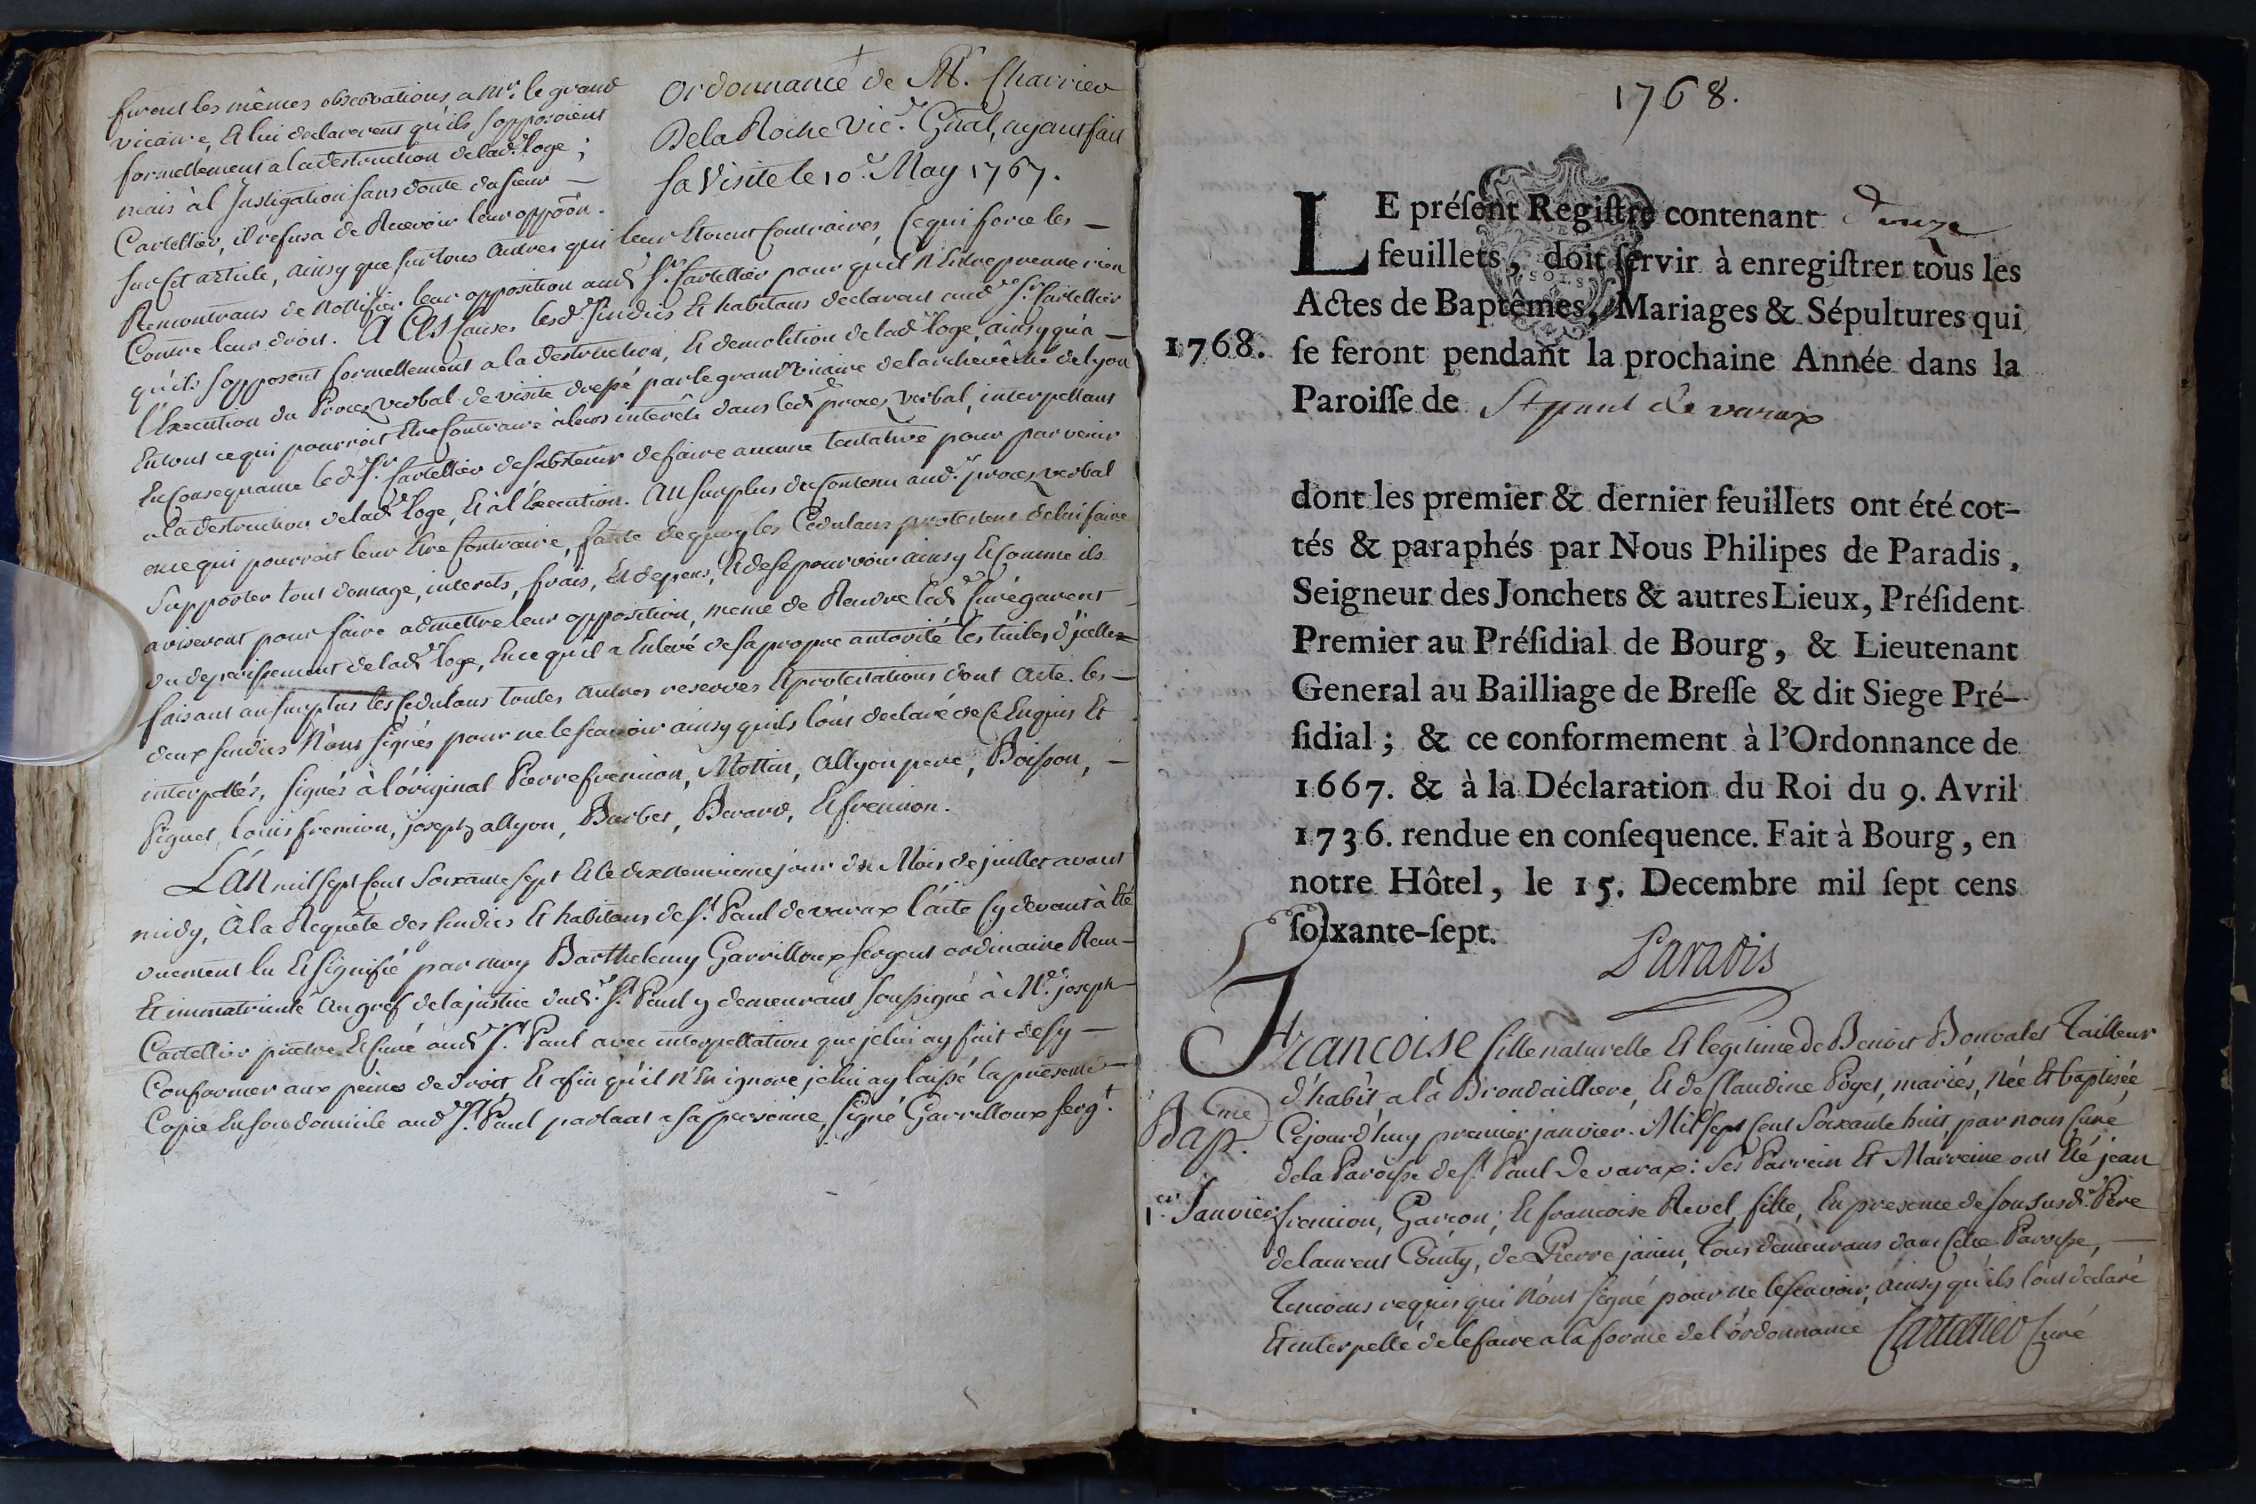 firent les mêmes observations a Mr. le grand
vicaire, Et lui declarerent qu'ils s'opposoient
formellement a la destruction de lad.e loge;
mais à l'Instigation sans doute du sieur —
Cartellier, il refusa de Recevoir leur oppôôn.
Ordonnance de M. Charrier
De la Roche Vic.r Gñal, ayant fait
sa Visite le 10.e May 1767.
sur Cet article, ainsy que sur tous autres qui leur Etoient Contraires, Ce qui force les —
Remontrans de Nottifier leur opposition aud.t Sr. Cartellier pour qu'il N'Entreprenne rien
Contre leur droit. A Ces Causes lesd.s sindics Et habitans declarent aud. Sr. Cartellier
qu'ils s'opposent formellement a la destruction, Et demolition de lad.e loge, ainsy qu'a —
l'Execution du Procez verbal de visite dressé par le grand vicaire de l'archevêché de Lyon
En tout ce qui pourroit Etre Contraire à leurs interêts dans led. procez verbal, interpellant
En Consequence led. Sr. Cartellier de s'abstenir de faire aucune tentative pour parvenir
a la destruction de lad.e loge, Et à l'Execution. Au surplus du Contenu aud. procez verbal
en ce qui pourroit leur Etre Contraire, faute de quoy les Cédulans protestent de lui faire
supporter tout domage, interets, frais, Et depens, Et de se pourvoir ainsy Et Comme ils
aviseront pour faire admettre leur opposition, meme de Rendre led. Curé garent
du deperissement de lad.e loge, En ce qu'il a Enlevé de sa propre autorité les tuiles d'jcelle
faisant au surplus les Cedulans toutes autres reserves Et protestations dont acte. les —
deux sindics N'ont signés pour ne le scavoir ainsy qu'ils l'ont declaré de Ce Enquis Et
interpellés, signés à l'original Pierre fremion, Mottin, allyon pere, Boisson, —
Piguet, louis fremion, joseph allyon, Barbet, Berard, Et fremion.
L'An mil sept Cent Soixante sept Et le dix Neuvieme jour du Mois de juillet avant
midy, à la Requête des sindics Et habitans de St. Paul de varax l'acte Cy devant à Eté
duement lu Et signifié par moy Barthelemy Garrilloux sergent ordinaire Reçu —
Et immatriculé au gref de la justice dud. St. Paul y demeurant soussigné à Me. joseph
Cartellier prêtre Et Curé aud. St. Paul avec interpellation que je lui ay fait de s'y —
Conformer aux peines de droit, Et afin qu'il N'En ignore je lui ay laissé la presente —
Copie En son domicile aud. St. Paul parlant a sa personne, signé Garrilloux serg.t
1768.
LE préſent Regiſtre contenant douze
feuillets, doit ſervir à enregiſtrer tous les
Actes de Baptêmes, Mariages & Sépultures qui
1768. ſe feront pendant la prochaine Année dans la
Paroiſſe de St paul de varax
dont les premier & dernier feuillets ont été cot-
tés & paraphés par Nous Philipes de Paradis,
Seigneur des Jonchets & autres Lieux, Préſident
Premier au Préſidial de Bourg, & Lieutenant
General au Bailliage de Breſſe & dit Siege Pré-
ſidial; & ce conformement à l'Ordonnance de
1667. & à la Déclaration du Roi du 9. Avril
1736. rendue en conſequence. Fait à Bourg, en
notre Hôtel, le 15. Decembre mil ſept cens
ſoixante-ſept.
Paradis
Francoise fille naturelle Et legitime de Benoit Bonvalet Tailleur
d'habit a la Brondailliere, Et de Claudine Poget, mariés, Née Et baptisée
1.me Bap. Cejourd'huy premier janvier. Mil sept Cent Soixante huit, par nous Curé
de la Paroisse de St. Paul De varax: Ses Parrein Et Marreine ont Eté jean
1.er Janvier fremion, Garcon; Et francoise Revel, fille, En presence de son susd.t Père
de laurent Cointy, de Pierre janin, tous demeurans dans Cette Paroisse, —
Temoins requis qui N'ont signé pour ne le scavoir, ainsy qu'ils l'ont declaré
Et interpellé de le faire a la forme de l'ordonnance Cartellier Curé